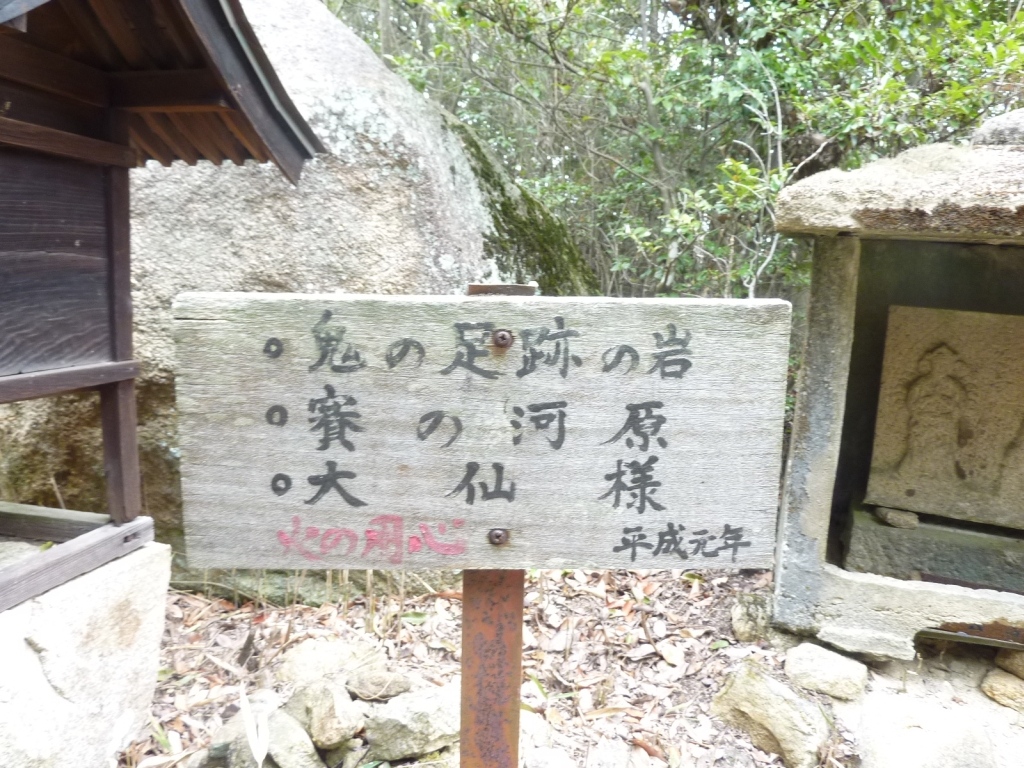 ○鬼の足跡の岩
○賽の河原
○大仙様
火の用心
平成元年